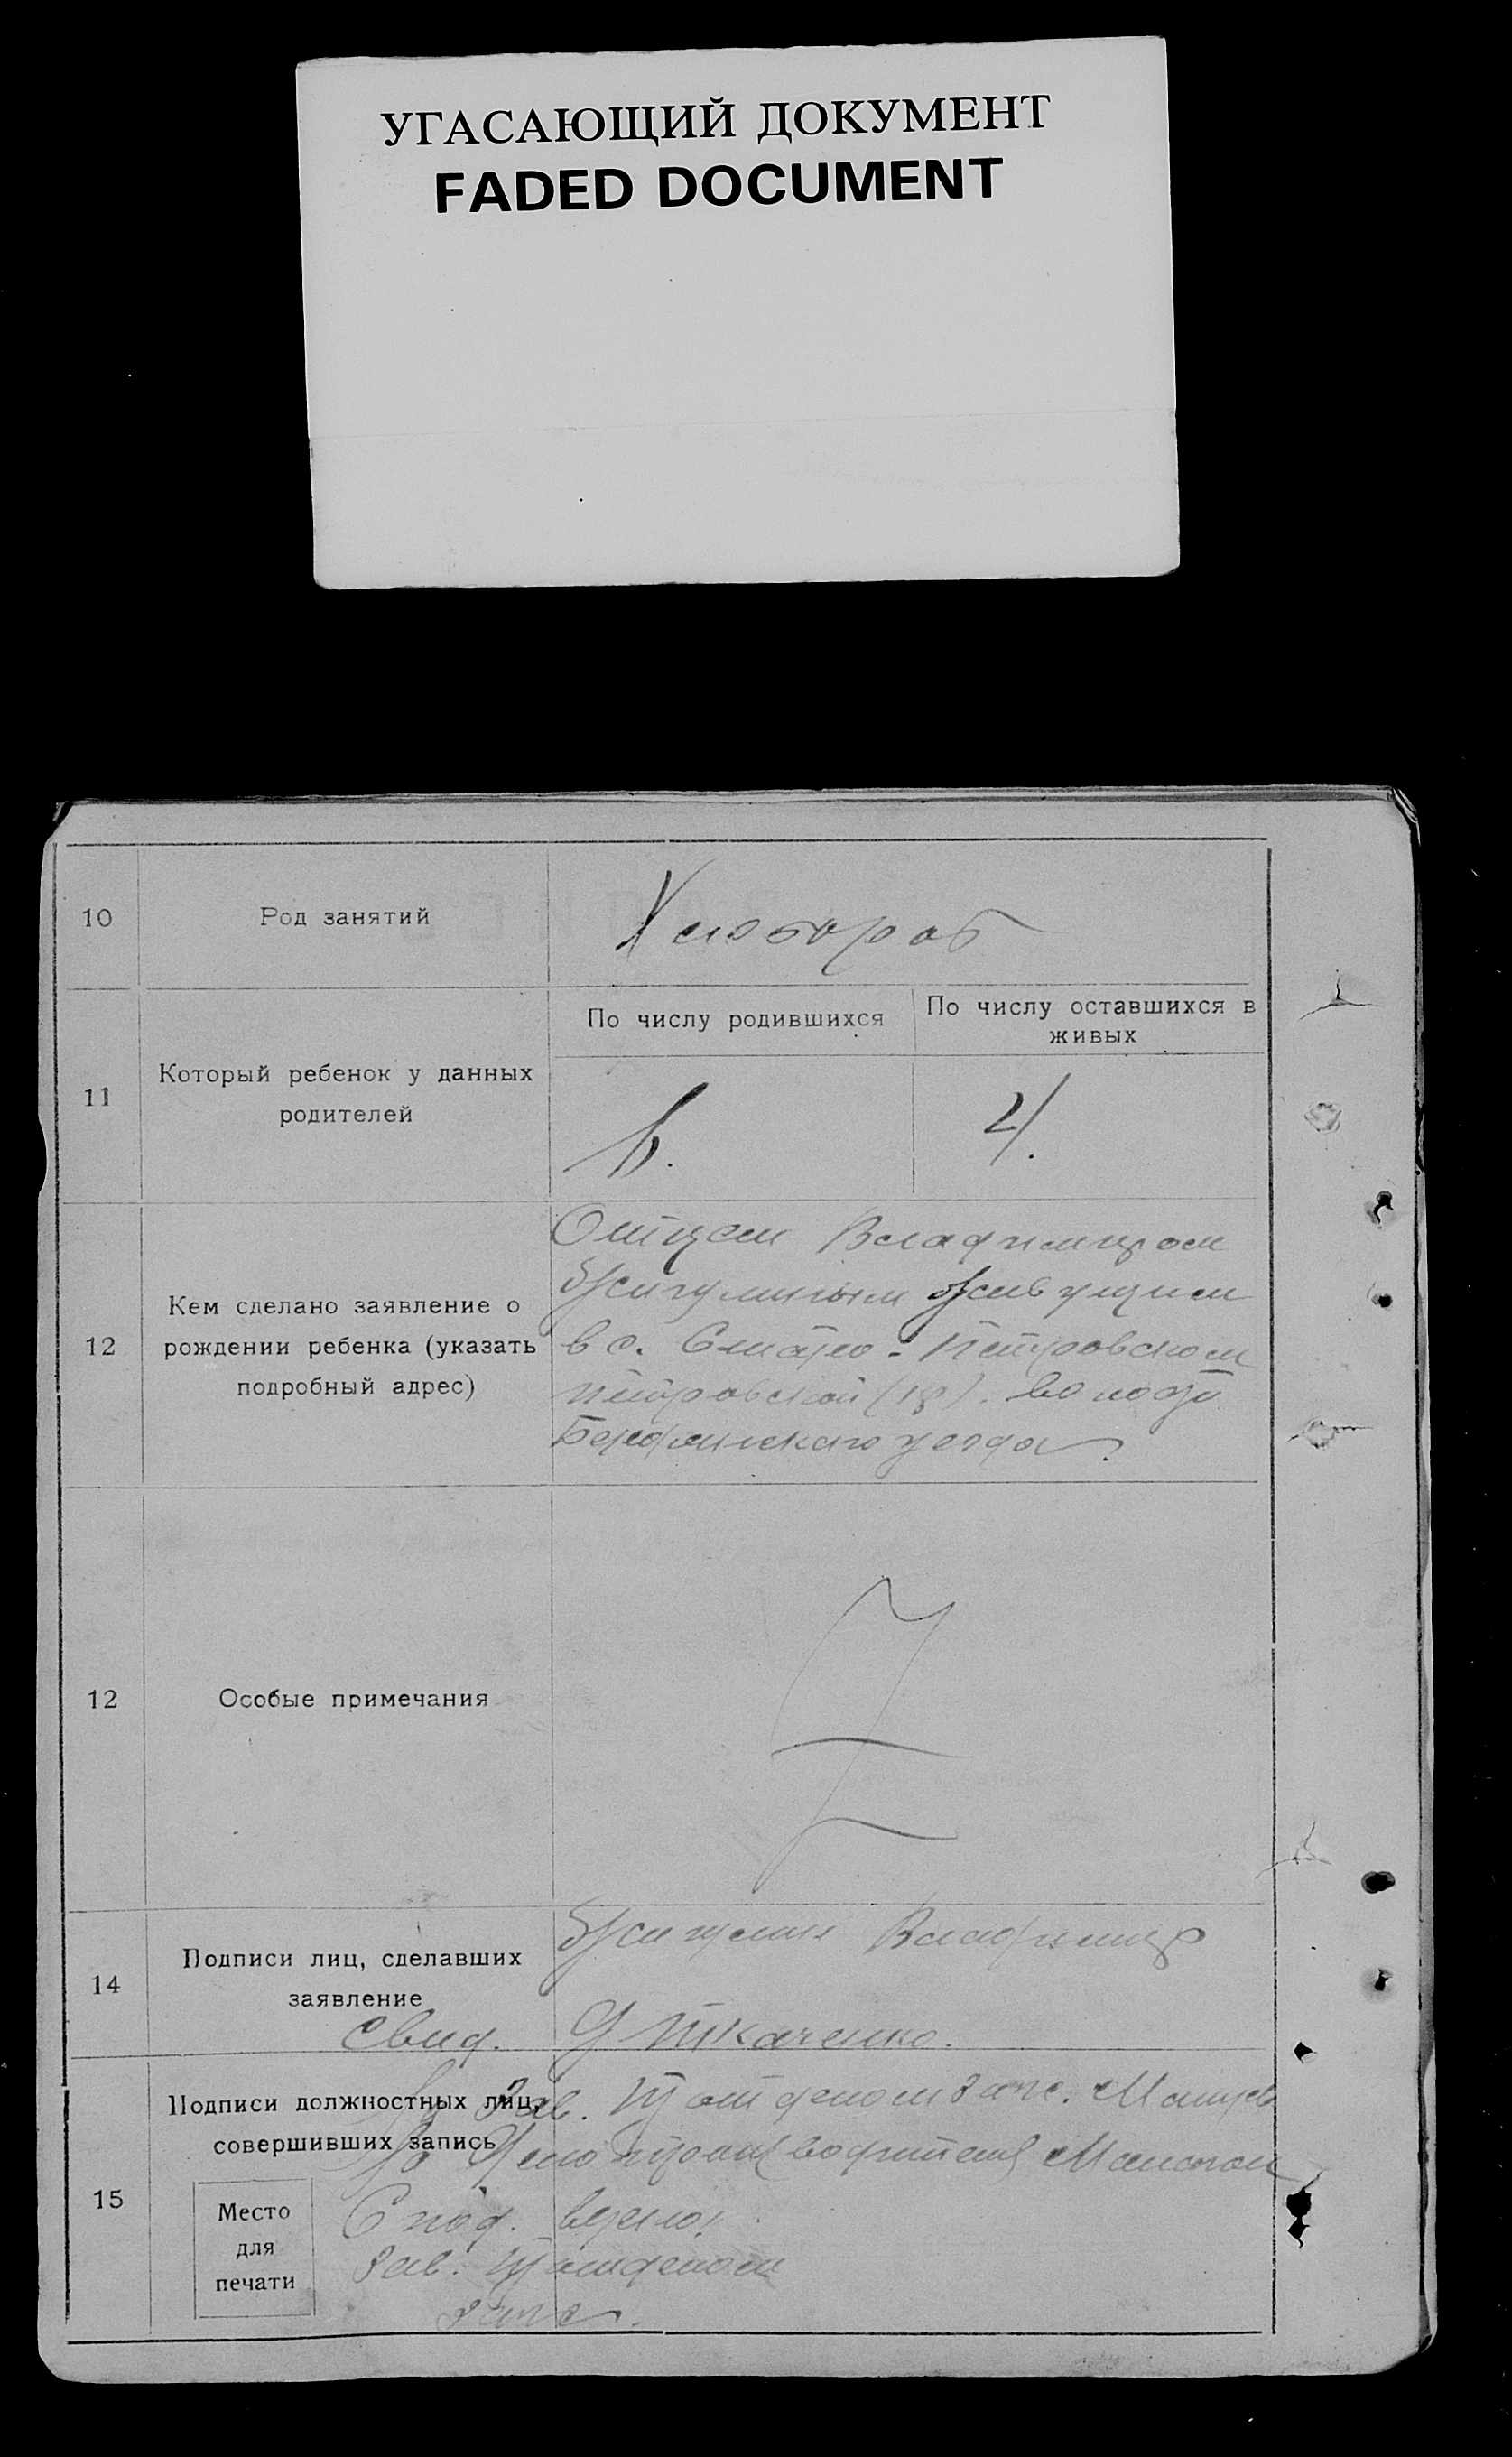 УГАСАЮЩИЙ ДОКУМЕНТ
FADED DOCUMENT
10
Род занятий
Хлебороб
11
Который ребенок у данных
родителей
По числу родившихся
По числу оставшихся в
живых
4.
12
Кем сделано заявление о
рождении ребенка (указать
подробный адрес)
Отцем Владимиром
Жигулиным живущим
в с. Петровском
Петровской волости
Бердянского уезда
12
Особые примечания
14
Подписи лиц, сделавших
заявление
Жигулин Владимир
свид. Ткаченко.
15
Подписи должностных лиц,
совершивших запись
Зав. загс.
Делопроизводителя
Место
для
печати
С под. верно:
Зав.
загс.